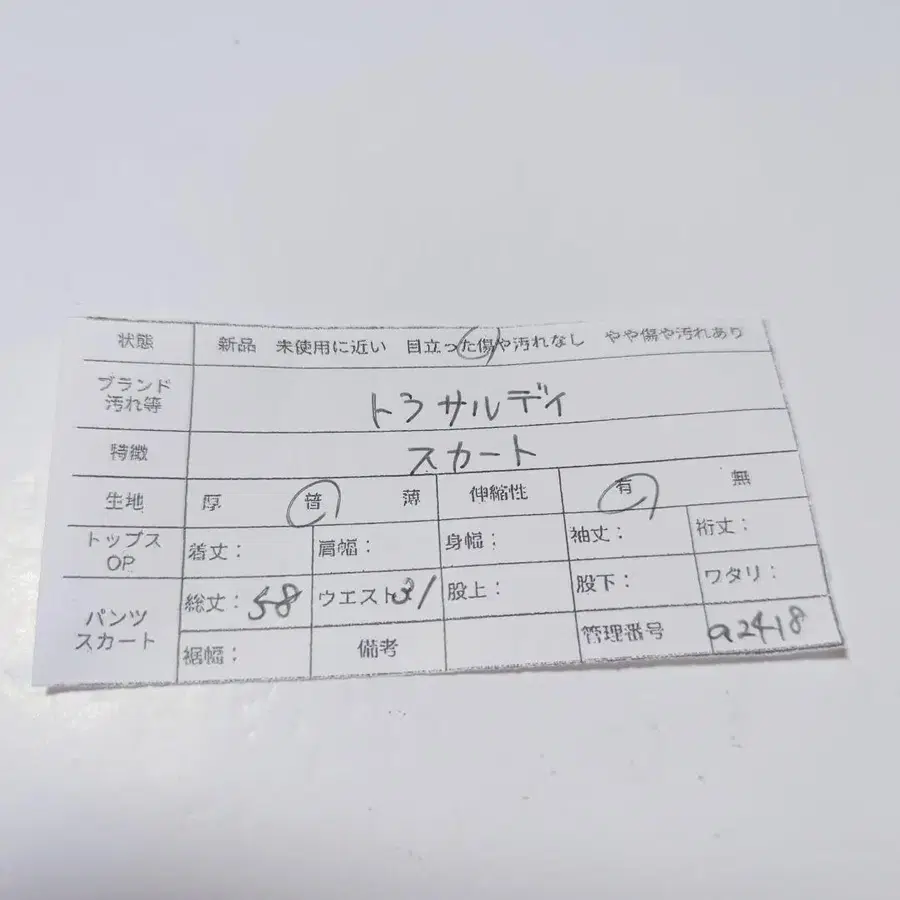 状態 新品 未使用に近い 目立った傷や汚れなし やや傷や汚れあり
ブランド
汚れ等
トラサルディ
特徴 スカート
生地 厚 普 薄 伸縮性 有 無
トップス
OP
着丈: 肩幅: 身幅: 袖丈: 裄丈:
パンツ
スカート
総丈: 58 ウエスト31 股上: 股下: ワタリ:
裾幅: 備考 管理番号 a2418